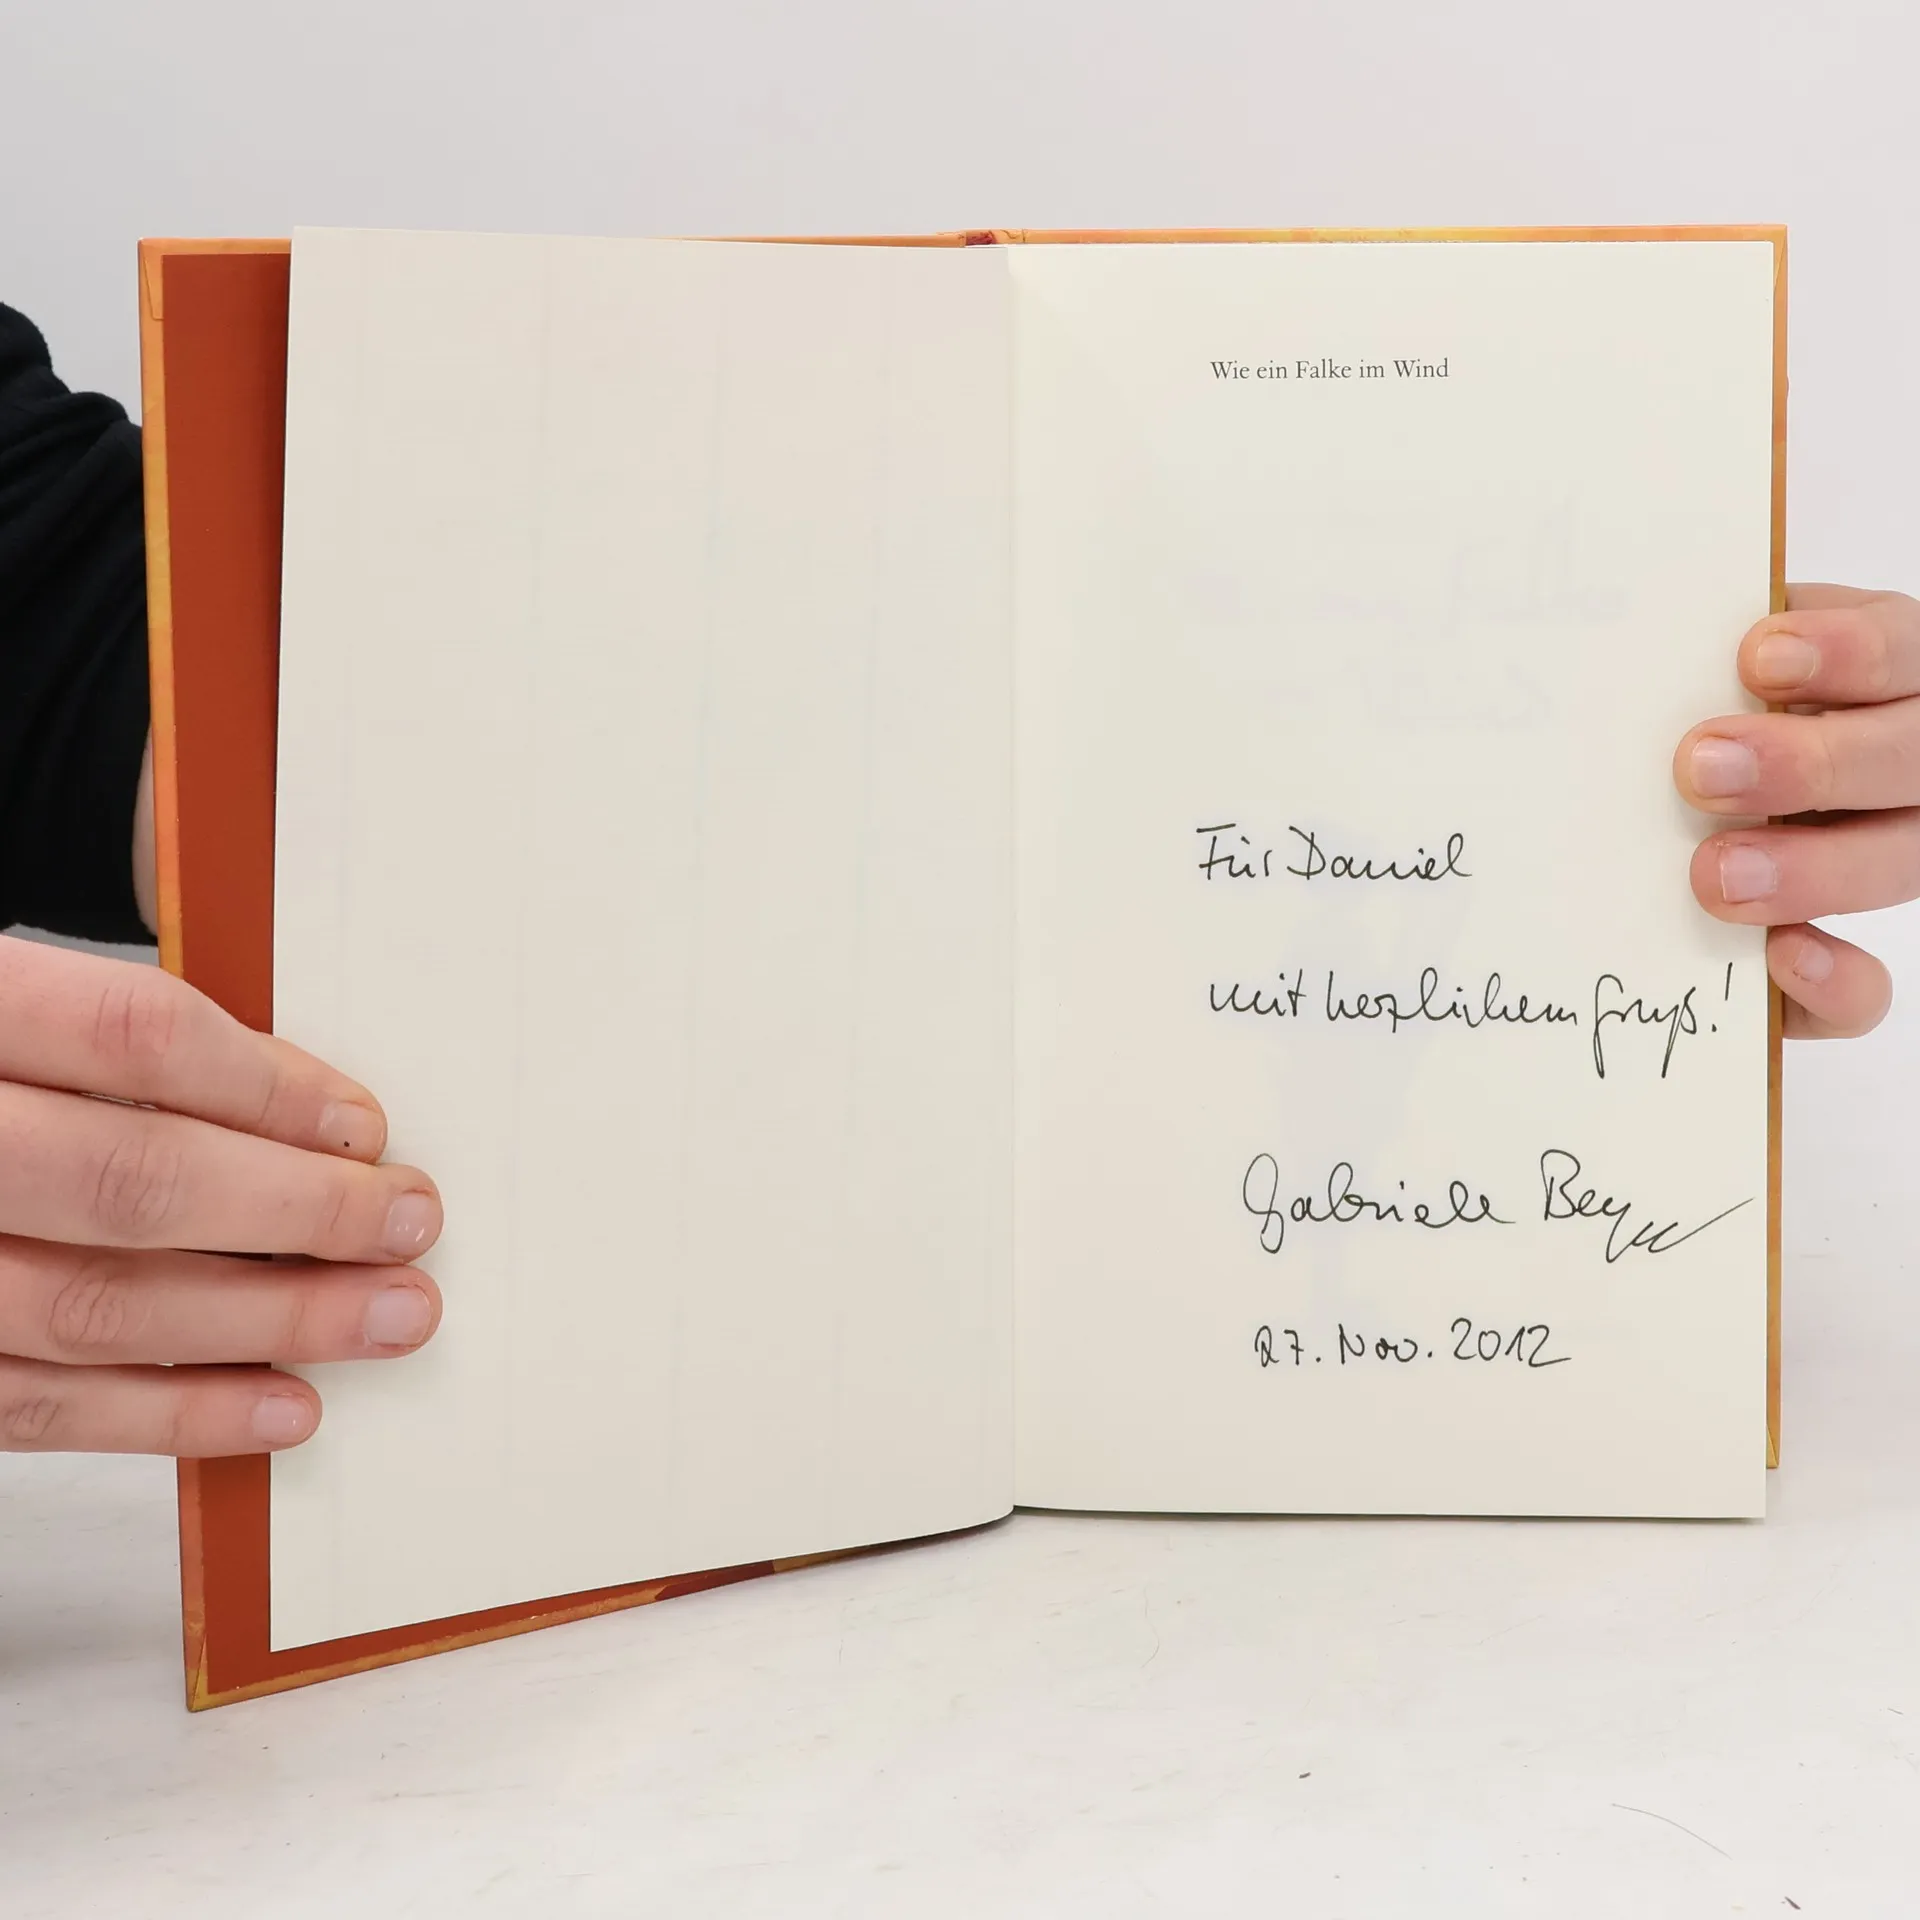 Wie ein Falke im Wind
Für Daniel
mit herzlichem Gruß!
Gabriele Beyer
27. Nov. 2012